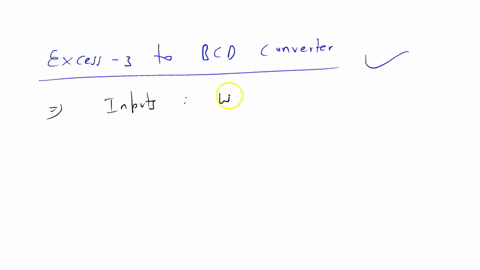 Excess-3 to BCD Converter
⇒ Inputs : W